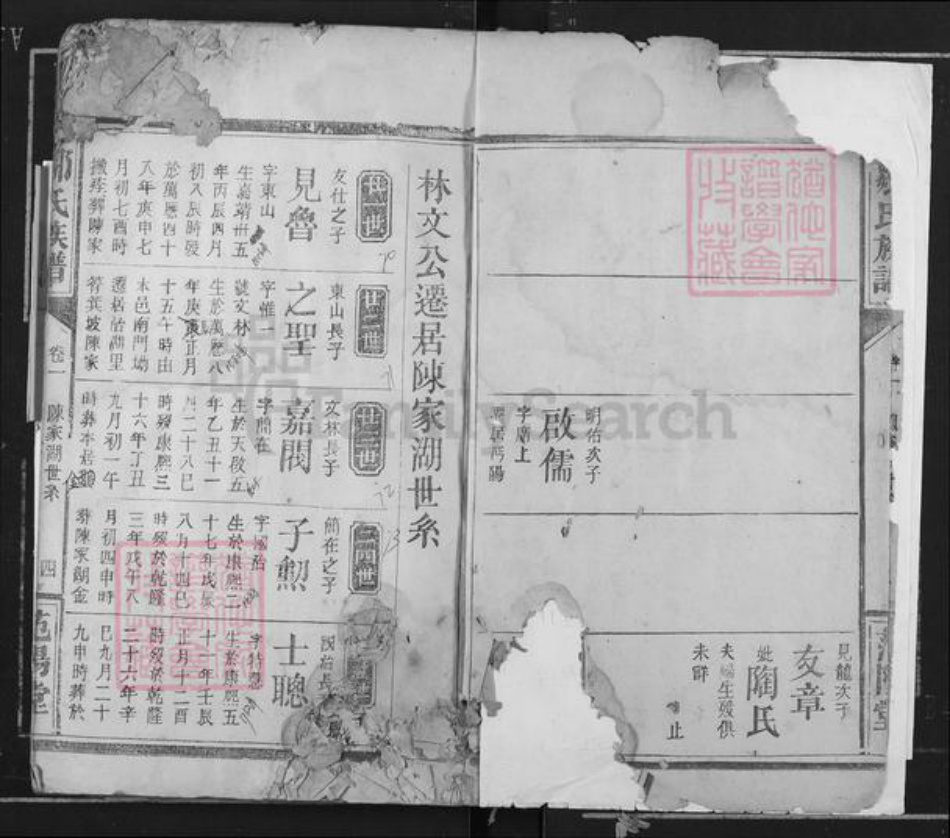 氏族
明佑次子
啟儒
字席上
見龍次子
友章
妣陶氏
生歿俱
未詳
止
林文公遷居陳家湖世系
廿一世
友仕之子
見魯
字東山
生嘉靖卅五
年丙辰四月
初八辰時歿
於萬曆四十
八年庚申七
月初七酉時
廿二世
東山長子
之聖
字惟一
號文林
生於萬曆八
年庚辰正月
十五午時由
本邑南門
遷居
陳家
廿三世
文林長子
嘉閣
字簡在
生於天啟五
年乙丑十一
月二十八巳
時歿康熙三
十六年丁丑
九月初一午
時葬本居
廿四世
簡在之子
子勲
生於康熙二
十七年戊辰
八月十四巳
時歿於乾隆
三年戊午八
月初四申時
葬陳家湖金
士聰
生於康熙五
十一年壬辰
正月十一酉
時歿於乾隆
二十六年辛
巳九月二十
九申時葬於
氏族譜
卷一
陳家湖世系
四
范陽堂
FamilySearch